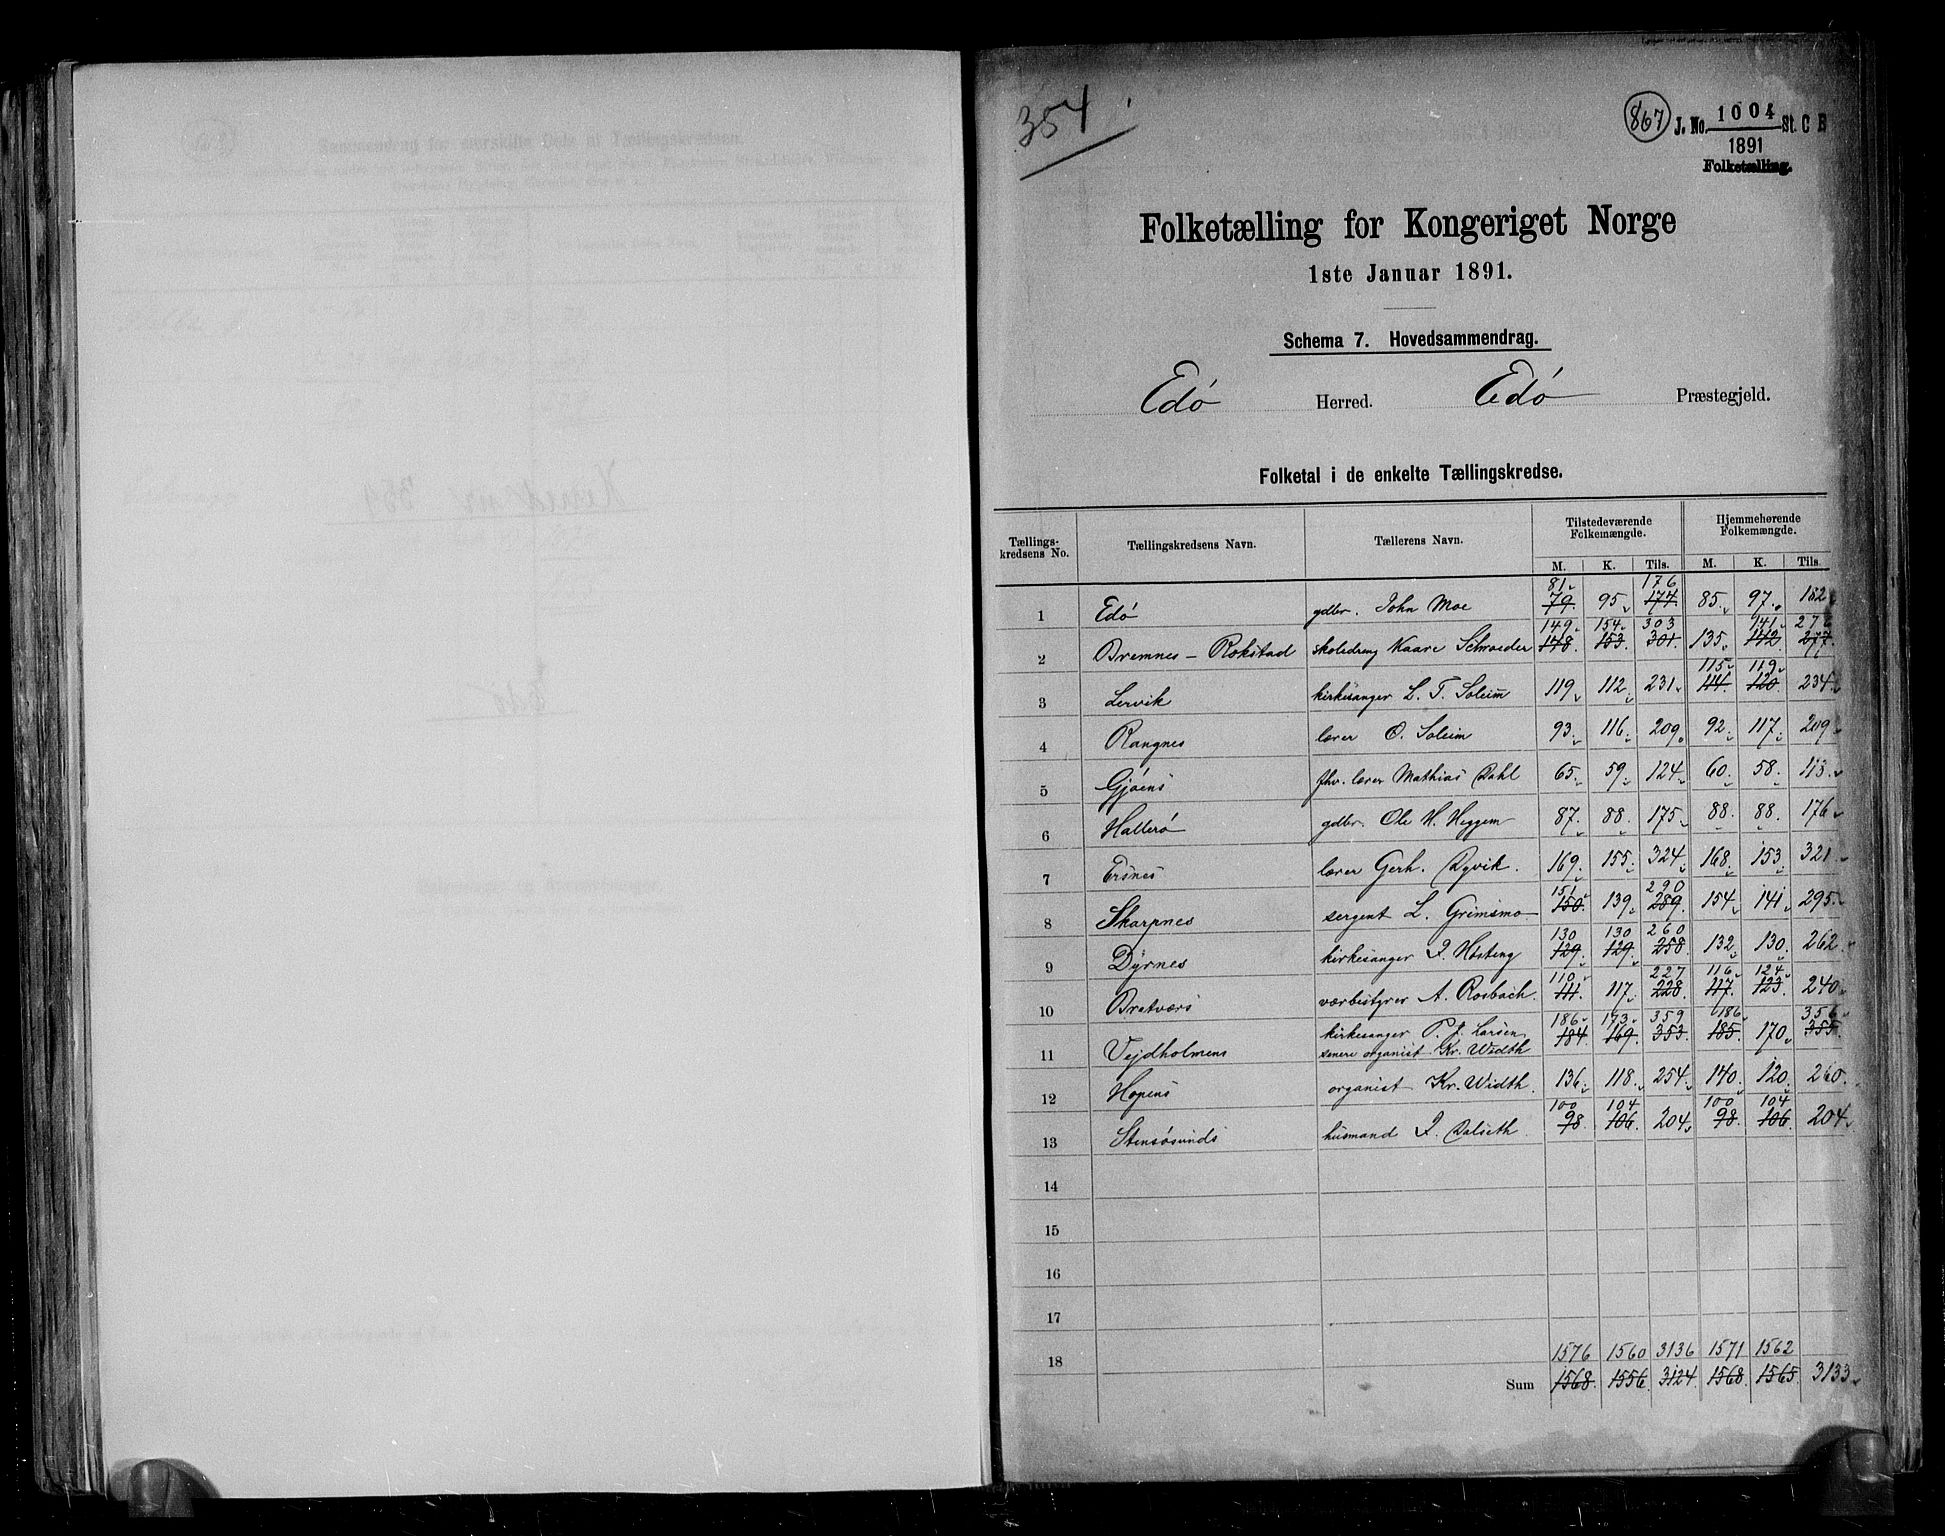 354
867 J. No. 1004 St. C B
1891
Folketælling.
Folketælling for Kongeriget Norge
1ste Januar 1891.
Schema 7. Hovedsammendrag.
Edø Herred. Edø Præstegjeld.
Folketal i de enkelte Tællingskredse.
Tællings-kredsens No. Tællingskredsens Navn. Tællerens Navn. Tilstedeværende Folkemængde. Hjemmehørende Folkemængde.
M. K. Tils. M. K. Tils.
81 176
1 Edø gdbr. John Moe 79 95 174 85 97 182
149 154 303 141 276
2 Bremnes - Rokstad skoledreng Kaare Schrøder 148 153 301 135 142 277
115 119
3 Lervik kirkesanger L. T. Soleim 119 112 231 114 120 234
4 Rangnes lærer O. Soleim 93 116 209 92 117 209
5 Gjøens fhv. lærer Mathias Dahl 65 59 124 60 58 118
6 Hallerø gdbr. Ole H. Heggem 87 88 175 88 88 176
7 Ersnes lærer Gerh. Dyvik. 169 155 324 168 153 321
151 290
8 Skarpnes sergent L. Grimsmo 150 139 289 154 141 295
130 130 260
9 Dyrnes kirkesanger I. Høsteng 129 129 258 132 130 262
110 227 116 124
10 Bratværs værbestyrer A. Rosbach. 111 117 228 117 123 240
186 173 359 186 356
11 Vejdholmens kirkesanger P. J. Larsen, 184 169 353 185 170 355
senere organist Kr. Width
12 Hopens organist Kr. Width. 136 118 254 140 120 260
100 104 100 104
13 Stensøsunds husmand I. Dalseth 98 106 204 98 106 204
14
15
16
17
18 1576 1560 3136 1571 1562
Sum 1568 1556 3124 1568 1565 3133